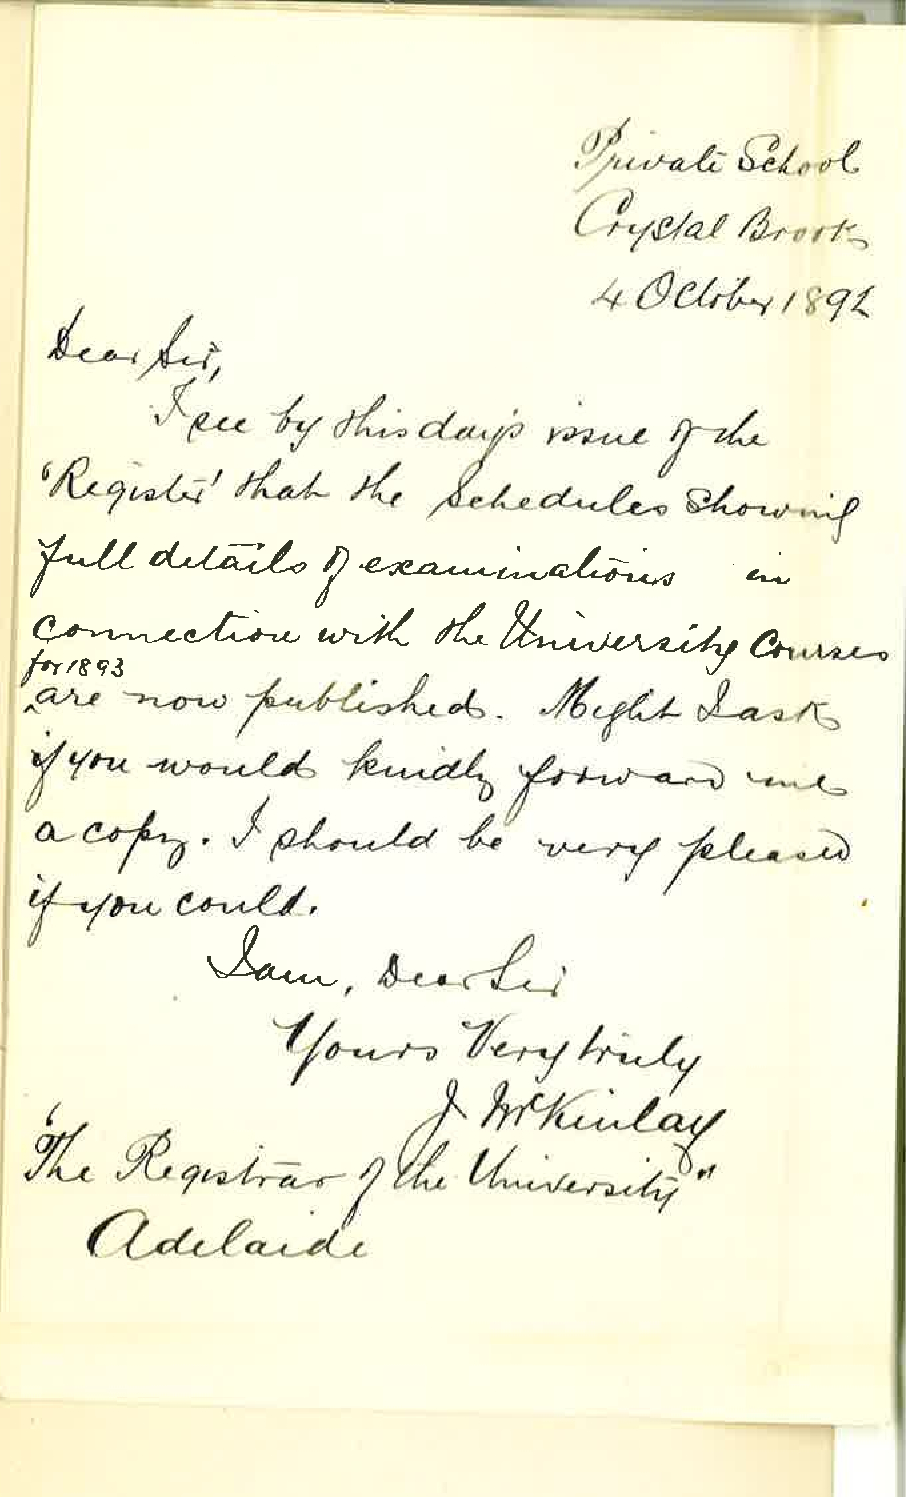 Private School
Crystal Brook
4 October 1892
Dear Sir,
I see by this day's issue of the
'Register' that the Schedules showing
full details of examinations in
connection with the University Courses
for 1893
are now published. Might I ask
if you would kindly forward me
a copy. I should be very pleased
if you could.
I am, Dear Sir
Yours Very truly
J McKinlay
"The Registrar of the University"
Adelaide